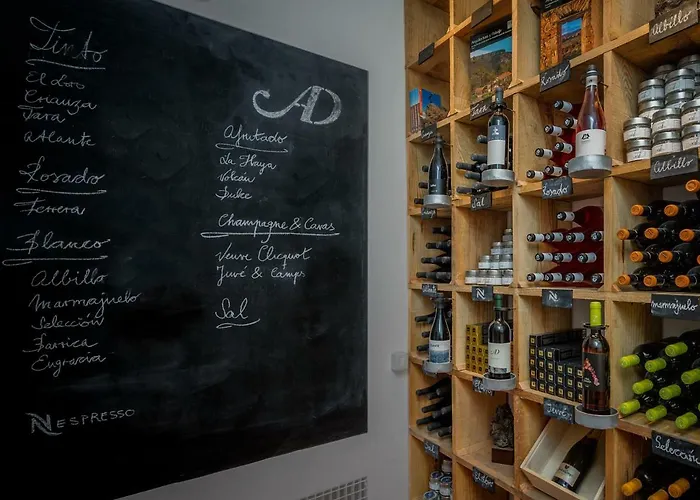 Tinto
El Loro
Crianza
Tara
Atlante
Rosado
Ferrera
Blanco
Albillo
Marmajuelo
Selección
Barrica
Engracia
NESPRESSO
AD
Afrutado
La Haya
Volcán
Dulce
Champagne & Cavas
Veuve Clicquot
Juvé & Camps
Sal
Rosado
Albillo
Sal
Rosado
Albillo
N
N
Marmajuelo
Juvé
Selección